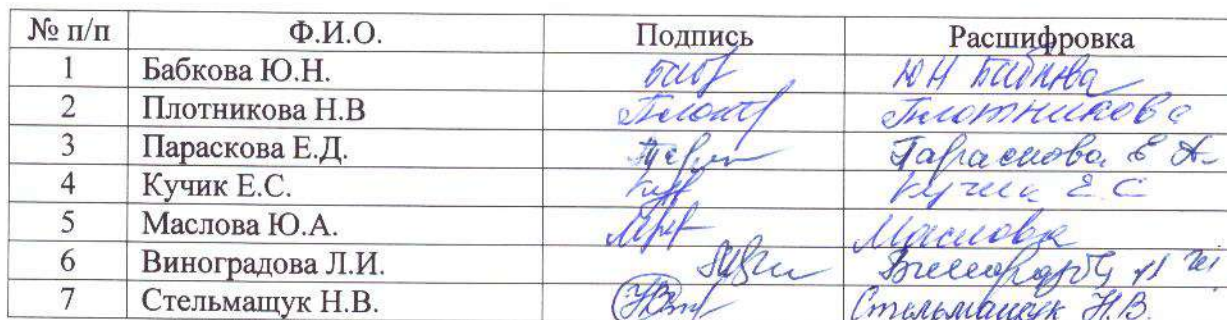 № п/п Ф.И.О. Подпись Расшифровка
1 Бабкова Ю.Н. ЮН Бабкова
2 Плотникова Н.В Плотникова
3 Параскова Е.Д. Параскова Е Д.
4 Кучик Е.С. Кучик Е.С
5 Маслова Ю.А. Маслова
6 Виноградова Л.И.
7 Стельмащук Н.В. Стельмащук Н.В.